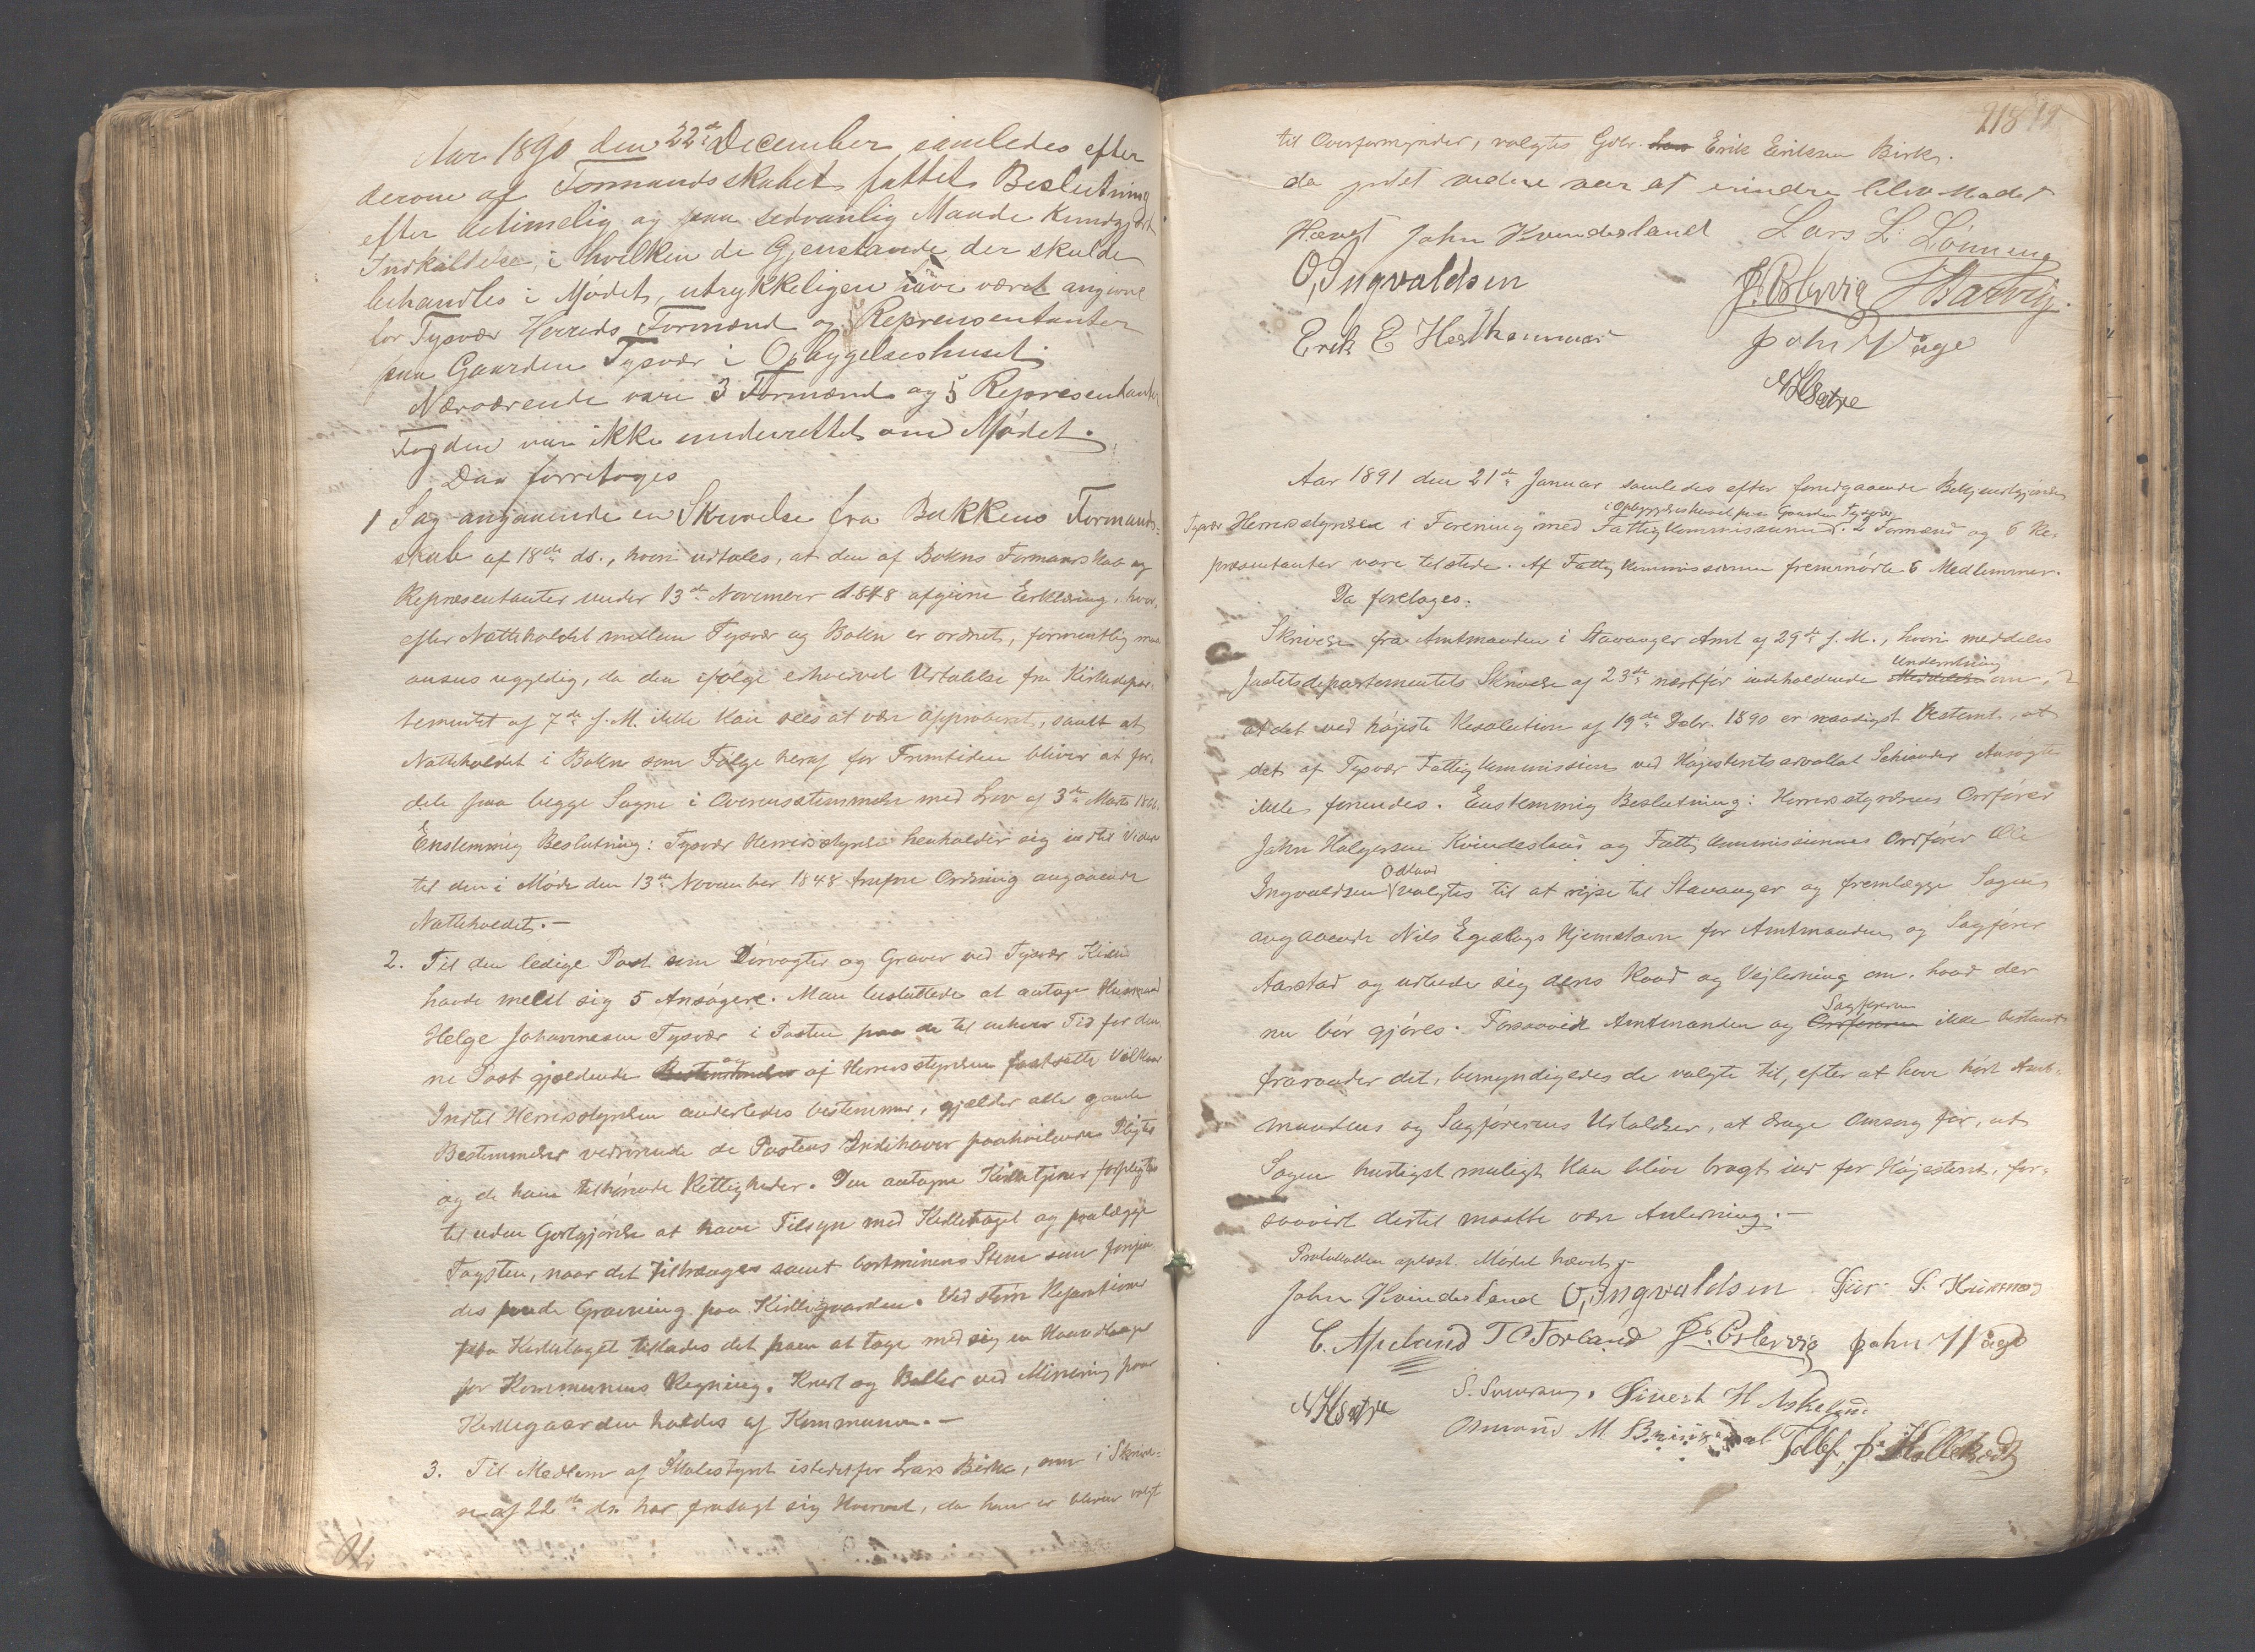 Aar 1890 den 22de December samledes efter
derom af Formandsskabet fattet Beslutning
efter betimelig og paa sedvanlig Maade Kundgjort
Indkaldelse, i hvilken de Gjenstande der skulde
behandles i Mødet, utrykkeligen have været angivne
for Tysvær Herreds Formænd og Repræsentanter
paa Gaarden Tysvær i Opbyggelseshuset.
Nærværende vare 3 Formænd og 5 Repræsentanter
Fogden var ikke underrettet om Mødet.
Daa foretoges
1 Sag angaaende en Skrivelse fra Bukkens Formand-
skab af 18de ds., hvori udtales, at den af Bokns Formandskab og
Repræsentanter under 13de November 1848 afgivne Erklæring, hvor-
efter Natteholdet mellem Tysvær og Bokn er ordnet, formentlig maa
anses ugyldig, da den ifølge erhvervet Udtalelse fra Kirkedepar-
tementet af 7de f. M. ikke kan sees at være approberet, samt at
Natteholdet i Bokn som Følge heraf for Fremtiden bliver at for-
dele paa begge Sogne i Overensstemmelse med Lov af 3de Marts 18
Enstemmig Beslutning: Tysvær Herredsstyrelse henholder sig indtil Videre
til den i Møde den 13de November 1848 trufne Ordning angaaende
Natteholdet.—
2. Til den ledige Post som Dørvogter og Graver ved Tysvær Kirke
havde meldt sig 5 Ansøgere. Man besluttede at antage Husmand
Helge Johannesen Tysvær i Posten paa de til enhver Tid for den-
ne Post gjældende og af Herredsstyrelsen fastsatte Vilkaar
Indtil Herredsstyrelsen anderledes bestemmer, gjælder alle gamle
Bestemmelser vedrørende de Postens Indehaver paahvilende Pligter
og de ham tilhørende Rettigheder. Den antagne Kirketjener forpligtes
til uden Godtgjørelse at have Tilsyn med Kirketaget og paalægge
Tagsten, naar det tiltrænges samt bortminere Stene som forefin-
des under Gravning paa Kirkegaarden. Ved større Reparationer
paa Kirketaget tillades det ham at tage med sig en Haandlanger
for Kommunens Regning. Krudt og Bolter ved Minering paa
Kirkegaarden holdes af Kommunen.—
3. Til Medlem af Skolestyret istedetfor Lars Birke, som i Skrivel-
se af 22de ds. har frasagt sig Hvervet, da han er bleven valgt
218
til Overformynder, valgtes Gdbr. Lars Erik Eriksen Birke.
da intet videre var at erindre blev Mødet
Hævet John Kvindesland Lars L. Lønning
O, Ingvaldsen
Erik E Hesthammer
John Vaage
NHSætre
Aar 1891 den 21de Januar samledes efter foregaaende Bekjendtgjørelse
i Opbyggelseshuset paa Gaarden Tysvær
Tysvær Herredsstyrelse i Forening med Fattigkommissionen. 2 Formænd og 6 Re-
præsentanter vare tilstede. Af Fattigkommissionen fremmødte 6 Medlemmer.
Da foretoges:
Skrivelse fra Amtmanden i Stavanger Amt af 29de f. M., hvori meddeles
Justitsdepartementets Skrivelse af 23de næstfør indeholdende Meddelelse Underretning om,
at det ved højeste Resolution af 19de Dcbr. 1890 er naadigst bestemt, at
det af Tysvær Fattigkommission ved Højesteretsadvokat Schiander Ansøgte
ikke forundes. Enstemmig Beslutning: Herredsstyrelsens Ordfører
John Halgersen Kvindesland og Fattigkommissionens Ordfører Ole
Ingvaldsen Odland valgtes til at rejse til Stavanger og fremlægge Sagen
angaaende Nils Hjemstavn for Amtmanden og Sagfører
Aarstad og udbede sig deres Raad og Vejledning om, hvad der
nu bør gjøres. Forsaavidt Amtmanden og Ordføreren Sagføreren ikke bestemt
fraraader det, bemyndigedes de valgte til, efter at have hørt Amt-
mandens og Sagførerens Udtalelser, at drage Omsorg for, at
Sagen hurtigst muligt kan blive bragt ind for Højesteret, for-
saavidt dertil maatte være Anledning.—
Protokollen oplæst. Mødet hævet.
John Kvindesland O, Ingvaldsen
C. Apeland T O Førland John Vaage
NHSætre Sivert H Askeland
Osmund M